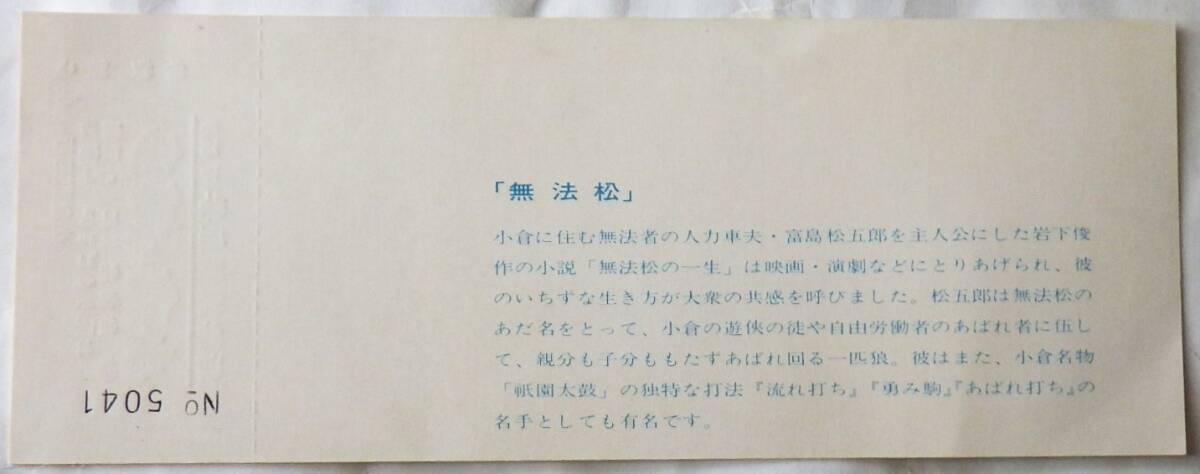 「無法松」
小倉に住む無法者の人力車夫・富島松五郎を主人公にした岩下俊
作の小説「無法松の一生」は映画・演劇などにとりあげられ、彼
のいちずな生き方が大衆の共感を呼びました。松五郎は無法松の
あだ名をとって、小倉の遊侠の徒や自由労働者のあばれ者に伍し
て、親分も子分ももたずあばれ回る一匹狼。彼はまた、小倉名物
「祇園太鼓」の独特な打法『流れ打ち』『勇み駒』『あばれ打ち』の
名手としても有名です。
№ 5041